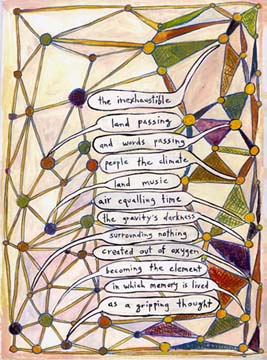 the inexhaustible
land passing
and words passing
people the climate
land music
air equalling time
the gravity's darkness
surrounding nothing
created out of oxygen
becoming the element
in which memory is lived
as a gripping thought